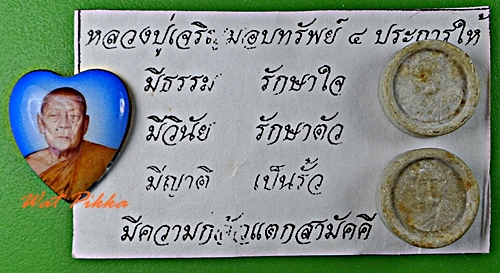 หลวงปู่เจริญมอบทรัพย์ ๔ ประการให้
มีธรรม รักษาใจ
มีวินัย รักษาตัว
มีญาติ เป็นรั้ว
มีความกลัวแตกสามัคคี
Wat Pikka